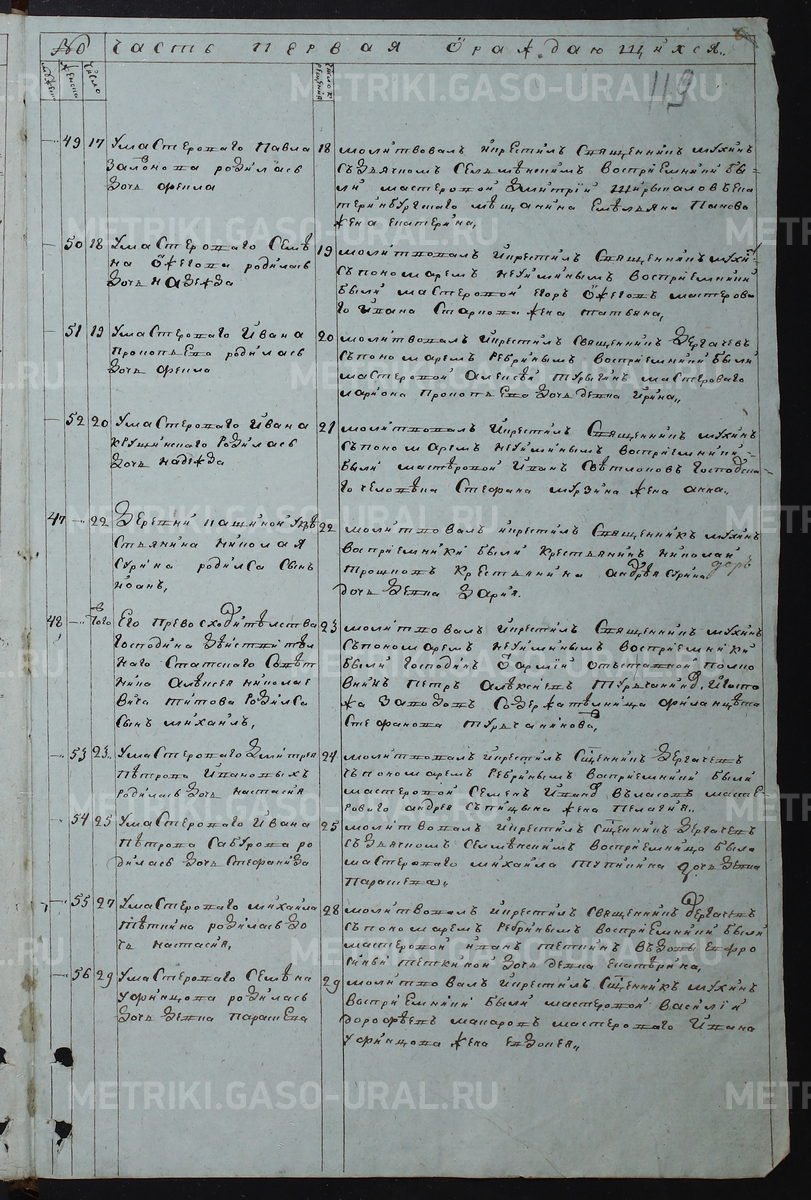 № Часть первая ораждающихся..
119
мужеска женска число
число крещения
49 17 Умастероваго Павла
Залово ва родилась
дочь фекла
18 молитвовалъ икрестилъ Священникъ мухинъ
съдьячкомъ Селменскимъ восприемники бы-
ли мастеровой дмитрий Ширыкаловъ ека
теринбургскаго мѣщанина Емельяна Панова
жена екатерина,
50 18 Умастероваго Семѣ
на Ожегова родилась
дочь надежда
19 молитвовалъ икрестилъ Священникъ мухи
съпономаремъ неуйминымъ восприемники
были мастеровой егоръ Ожеговъ мастерова
го ивана Старкова жена татьяна,
51 19 Умастероваго Ивана
Прокопьева родилась
дочь фекла
20 молитвовалъ икрестилъ Священникъ Дергачевъ
съпономаремъ ребринымъ восприемники были
мастеровой Алексѣй турыгинъ мастероваго
лариона прокопьева дочь девка ирина,,
52 20 Умастероваго Ивана
кузинскаго родилась
дочь надежда
21 молитвовалъ икрестилъ Священникъ мухинъ
съпономаремъ неуйминымъ восприемники-
были мастеровой иванъ Свѣтлоковъ господска
го человѣка Стефана мурзина жена анна..
47 22 деревни пашиной укре
стьянина николая
сурина родился сынъ
иоанъ,
22 молитвовалъ икрестилъ Священникъ мухинъ
восприемники были крестьянинъ николай
трошковъ крестьянина андрея сурина доръ
дочь девка дария.
48 — в того Его превосходительства
господина действител
наго статскаго Совет
ника алексея николае
вича титова родился
сынъ михаилъ,
23 молитвовалъ икрестилъ Священникъ мухинъ
съпономаремъ неуйминымъ восприемники
были господинъ О армии отставной полко
вникъ петръ алексѣевъ турчаниновъ, игоспо
жа заводовъ содержательница филанцета
стефанова турчанинова,
53 23.. Умастероваго дмитрея
петрова ивановыхъ
родилась дочь настасия
24 молитвовалъ икрестилъ Сщенникъ дергачевъ
съпономаремъ ребринымъ восприемники были
мастеровой Семенъ ивановъ власовъ мастe-
роваго андрея съпицына жена пелагия..
54 25 Умастероваго Ивана
петрова сабурова ро
дилась дочь стефанида
25 молитвовалъ икрестилъ Сщенникъ дергачевъ
съдьячкомъ Селменскимъ восприемница была
мастероваго михаила тупикина дочь девка
парасковья,,
55 27 Умастероваго михаила
теткина родилась до
чь настасия,
28 молитвовалъ икрестилъ священникъ дергачевъ
съпономаремъ ребринымъ восприемники были
мастеровой иванъ теткинъ вдовы евфро
синьи теткиной дочь девка екатерина,
56 29 Умастероваго Семѣна
уфинцова родилась
дочь девка парасковья
29 молитвовалъ икрестилъ Сщенникъ мухинъ
восприемники были мастеровой василий
дорофеевъ макаровъ мастероваго ивана
уфинцова жена евдокея,,
METRIKI.GASO-URAL.RU